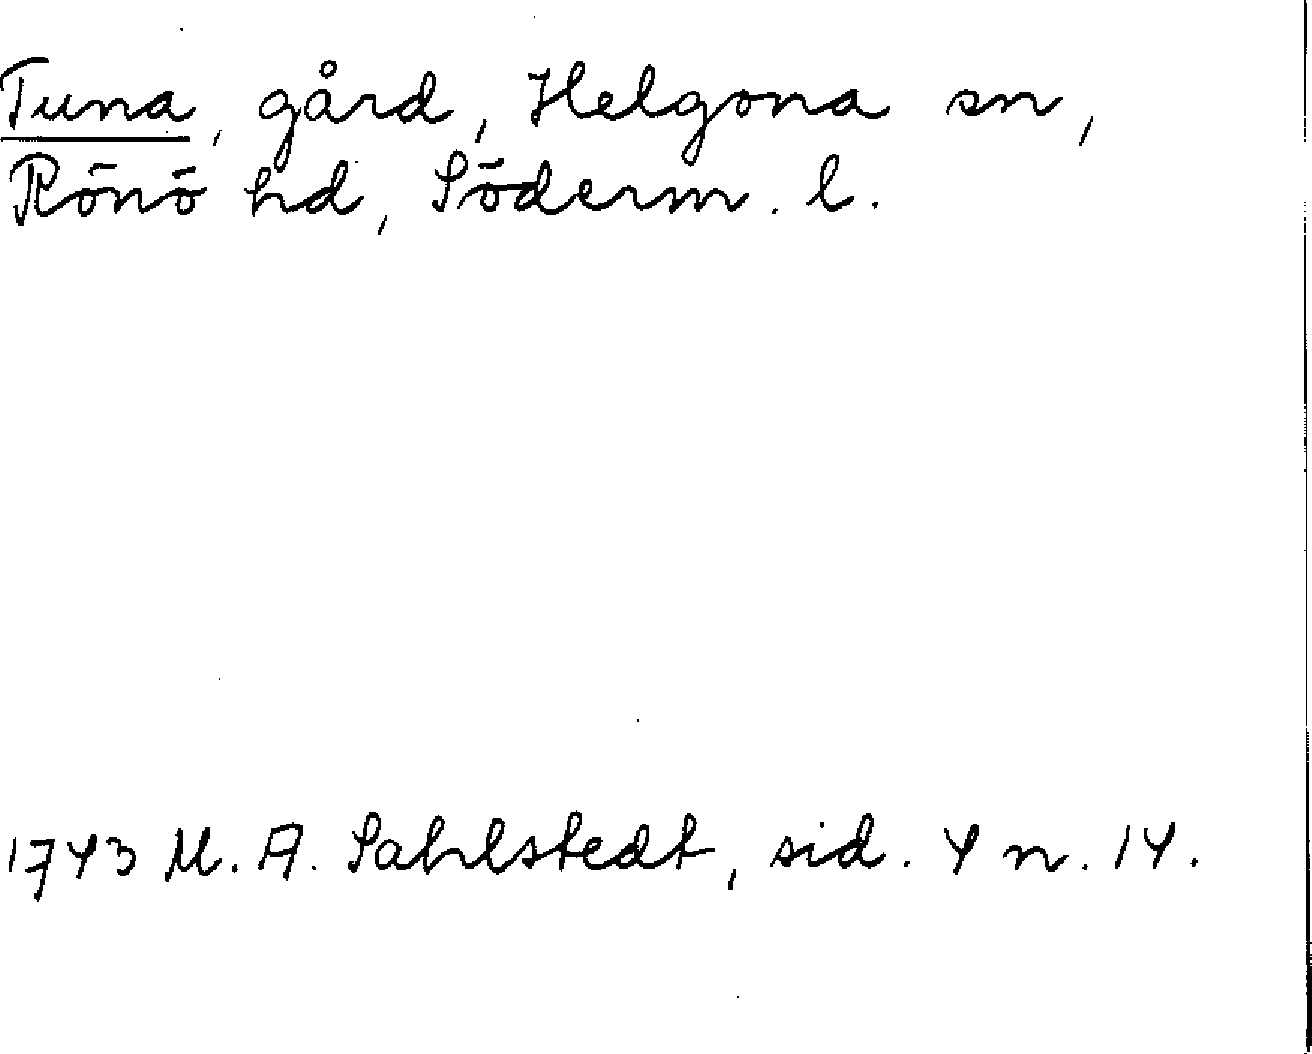 Tuna, gård, Helgona sn,
Rönö hd, Söderm. l.
1743 M. A. Sahlstedt, sid. 4 n. 14.